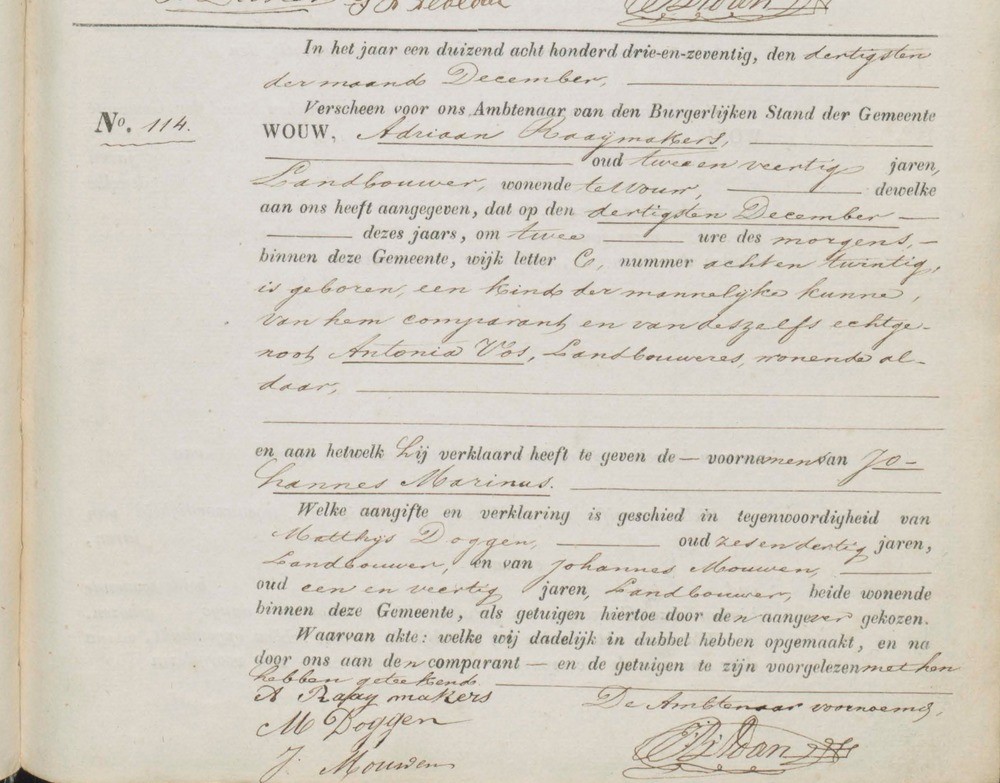 In het jaar een duizend acht honderd drie-en-zeventig, den dertigsten
der maand December,
No. 114.
Verscheen voor ons Ambtenaar van den Burgerlijken Stand der Gemeente
WOUW, Adriaan Raaijmakers,
oud twee en veertig jaren,
Landbouwer, wonende te Wouw, dewelke
aan ons heeft aangegeven, dat op den dertigsten December
dezes jaars, om twee ure des morgens,
binnen deze Gemeente, wijk letter C, nummer acht en twintig,
is geboren, een kind der mannelijke kunne,
van hem comparant en van deszelfs echtge-
noot Antonia Vos, Landbouweres, wonende al-
daar,
en aan hetwelk hij verklaard heeft te geven de voornamen van Jo-
hannes Marinus.
Welke aangifte en verklaring is geschied in tegenwoordigheid van
Matthijs Doggen, oud zes en dertig jaren,
Landbouwer, en van Johannes Mouwen,
oud een en veertig jaren, Landbouwer, beide wonende
binnen deze Gemeente, als getuigen hiertoe door den aangever gekozen.
Waarvan akte: welke wij dadelijk in dubbel hebben opgemaakt, en na
door ons aan den comparant en de getuigen te zijn voorgelezen met hen
hebben geteekend.
A Raaymakers De Ambtenaar voornoemd,
M Doggen
J. Mouwen